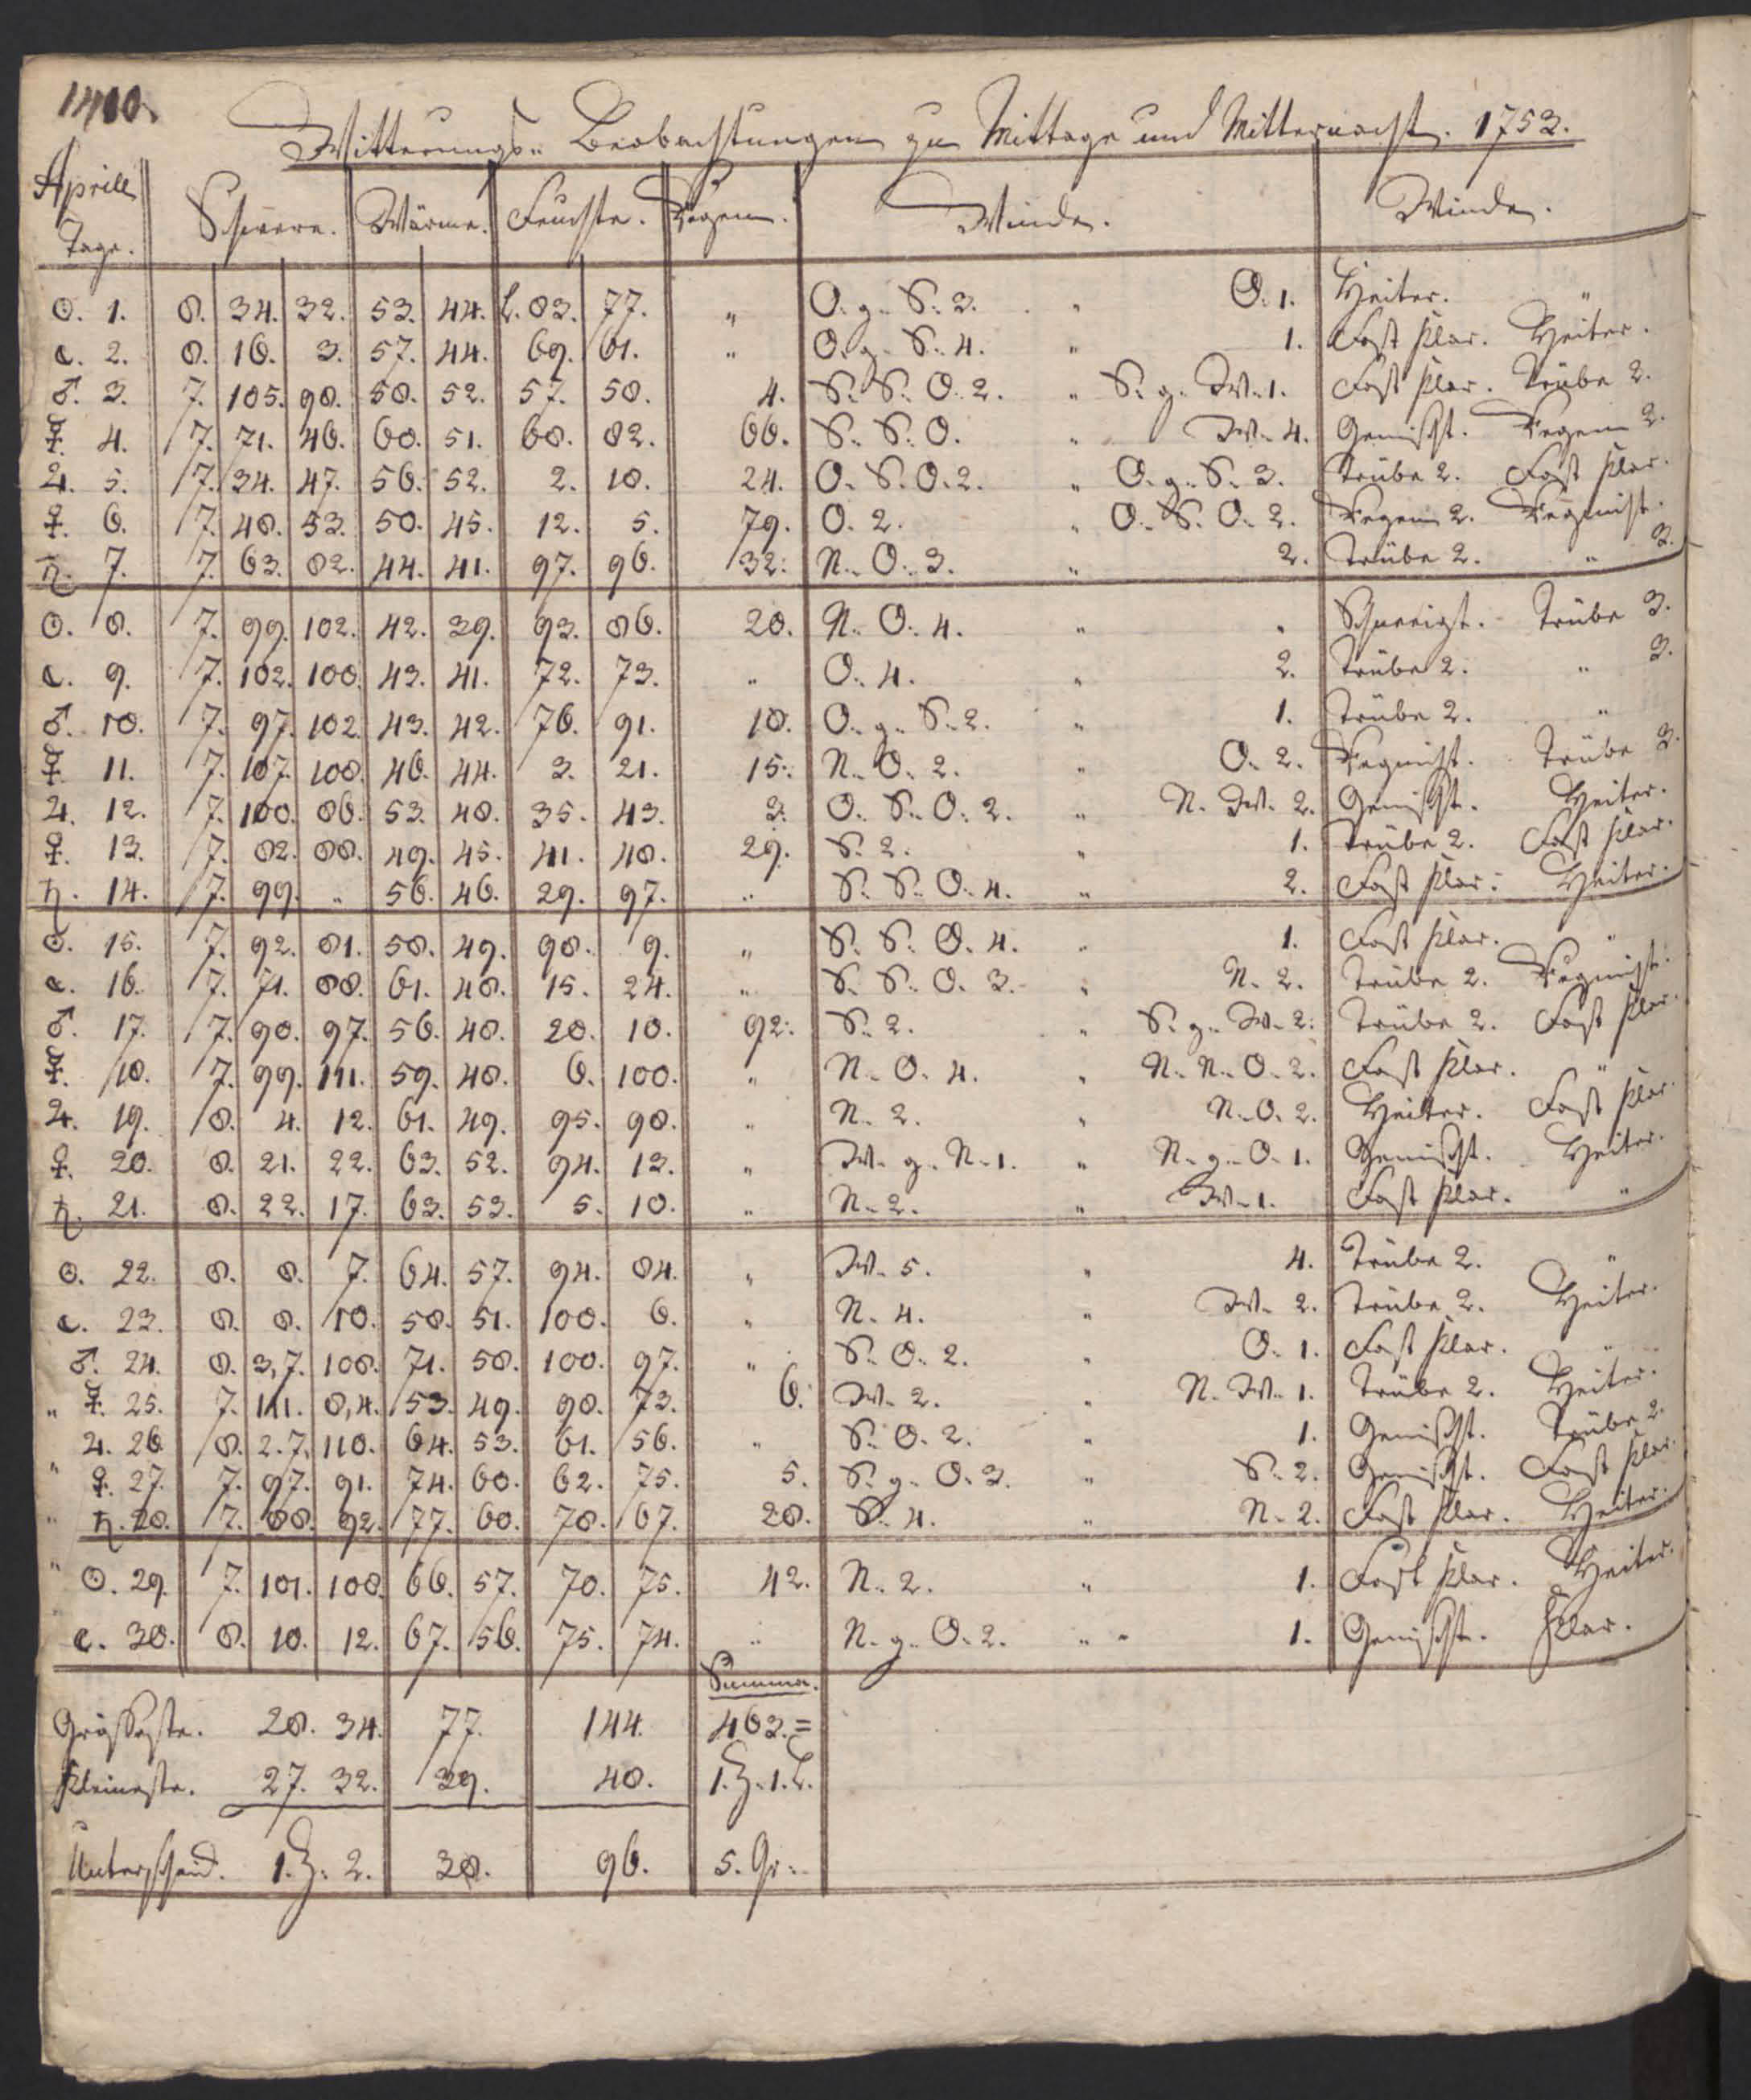 1410.
Witterungs- Beobachtungen zu Mittage und Mitternacht. 1753.
Aprill
Tage. Schwere. Wärme. Feuchte. Regen. Winde. Winde.
☉. 1. 8. 34. 32. 53. 44. L. 83. 77. " O. g. S. 3. " O. 1. Heiter. "
☾. 2. 8. 16. 3. 57. 44. 69. 61. " O. g. S. 4. " 1. Fast klar. Heiter.
♂. 3. 7. 105. 98. 58. 52. 57. 58. 4. S. S. O. 2. " S. g. W. 1. Fast klar. Trübe 2.
☿. 4. 7. 71. 46. 60. 51. 68. 82. 66. S. S. O. " W. 4. Gemischt. Regen 2.
♃. 5. 7. 34. 47. 56. 52. 2. 18. 24. O. S. O. 2. " O. g. S. 3. Trübe 2. Fast klar.
♀. 6. 7. 48. 53. 50. 45. 12. 5. 79. O. 2. " O. S. O. 2. Regen 2. Regnicht.
♄. 7. 7. 63. 82. 44. 41. 97. 96. 32. N. O. 3. " 2. Trübe 2. " 3.
☉. 8. 7. 99. 102. 42. 39. 93. 86. 20. N. O. 4. " " Schneeigt. Trübe 3.
☾. 9. 7. 102. 100. 43. 41. 72. 73. " O. 4. " 2. Trübe 2. " 3.
♂. 10. 7. 97. 102. 43. 42. 76. 91. 18. O. g. S. 2. " 1. Trübe 2. "
☿. 11. 7. 107. 108. 46. 44. 3. 21. 15. N. O. 2. " O. 2. Regnicht. Trübe 3.
♃. 12. 7. 100. 86. 53. 48. 35. 43. 3. O. S. O. 2. " N. W. 2. Gemischt. Heiter.
♀. 13. 7. 82. 88. 49. 45. 41. 48. 29. S. 2. " 1. Trübe 2. Fast klar.
♄. 14. 7. 99. " 56. 46. 29. 97. " S. S. O. 4. " 2. Fast klar. Heiter.
☉. 15. 7. 92. 81. 58. 49. 98. 9. " S. S. O. 4. " 1. Fast klar. "
☾. 16. 7. 71. 88. 61. 48. 15. 24. " S. S. O. 3. " N. 2. Trübe 2. Regnicht.
♂. 17. 7. 90. 97. 56. 48. 20. 10. 92. S. 2. " S. g. W. 2. Trübe 2. Fast klar.
☿. 18. 7. 99. 111. 59. 48. 6. 100. " N. O. 4. " N. N. O. 2. Fast klar. "
♃. 19. 8. 4. 12. 61. 49. 95. 98. " N. 2. " N. O. 2. Heiter. Fast klar.
♀. 20. 8. 21. 22. 63. 52. 94. 13. " W. g. N. 1. " N. g. O. 1. Gemischt. Heiter.
♄. 21. 8. 22. 17. 63. 53. 5. 10. " N. 2. " W. 1. Fast klar. "
☉. 22. 8. 8. 7. 64. 57. 94. 84. " W. 5. " 4. Trübe 2. "
☾. 23. 8. 8. 10. 58. 51. 100. 6. " N. 4. " W. 2. Trübe 2. Heiter.
♂. 24. 8. 3,7. 108. 71. 58. 100. 97. " S. O. 2. " O. 1. Fast klar. "
" ☿. 25. 7. 111. 8,4. 53. 49. 98. 73. 6. W. 2. " N. W. 1. Trübe 2. Heiter.
♃. 26. 8. 2.7. 110. 64. 53. 61. 56. " S. O. 2. " 1. Gemischt. Trübe 2.
" ♀. 27. 7. 97. 91. 74. 60. 62. 75. 5. S. g. O. 3. " S. 2. Gemischt. Fast klar.
" ♄. 28. 7. 88. 92. 77. 60. 78. 67. 28. S. 4. " N. 2. Fast klar. Heiter.
" ☉. 29. 7. 101. 108. 66. 57. 70. 75. 42. N. 2. " 1. Fast klar. Heiter.
☾. 30. 8. 10. 12. 67. 56. 75. 74. " N. g. O. 2. " " 1. Gemischt. Klar.
Summa.
Größeste. 28. 34. 77. 144. 463. =
Kleineste. 27. 32. 39. 48. 1. Z. 1. L.
Unterscheid. 1. Z. 2. 38. 96. 5. Gr.